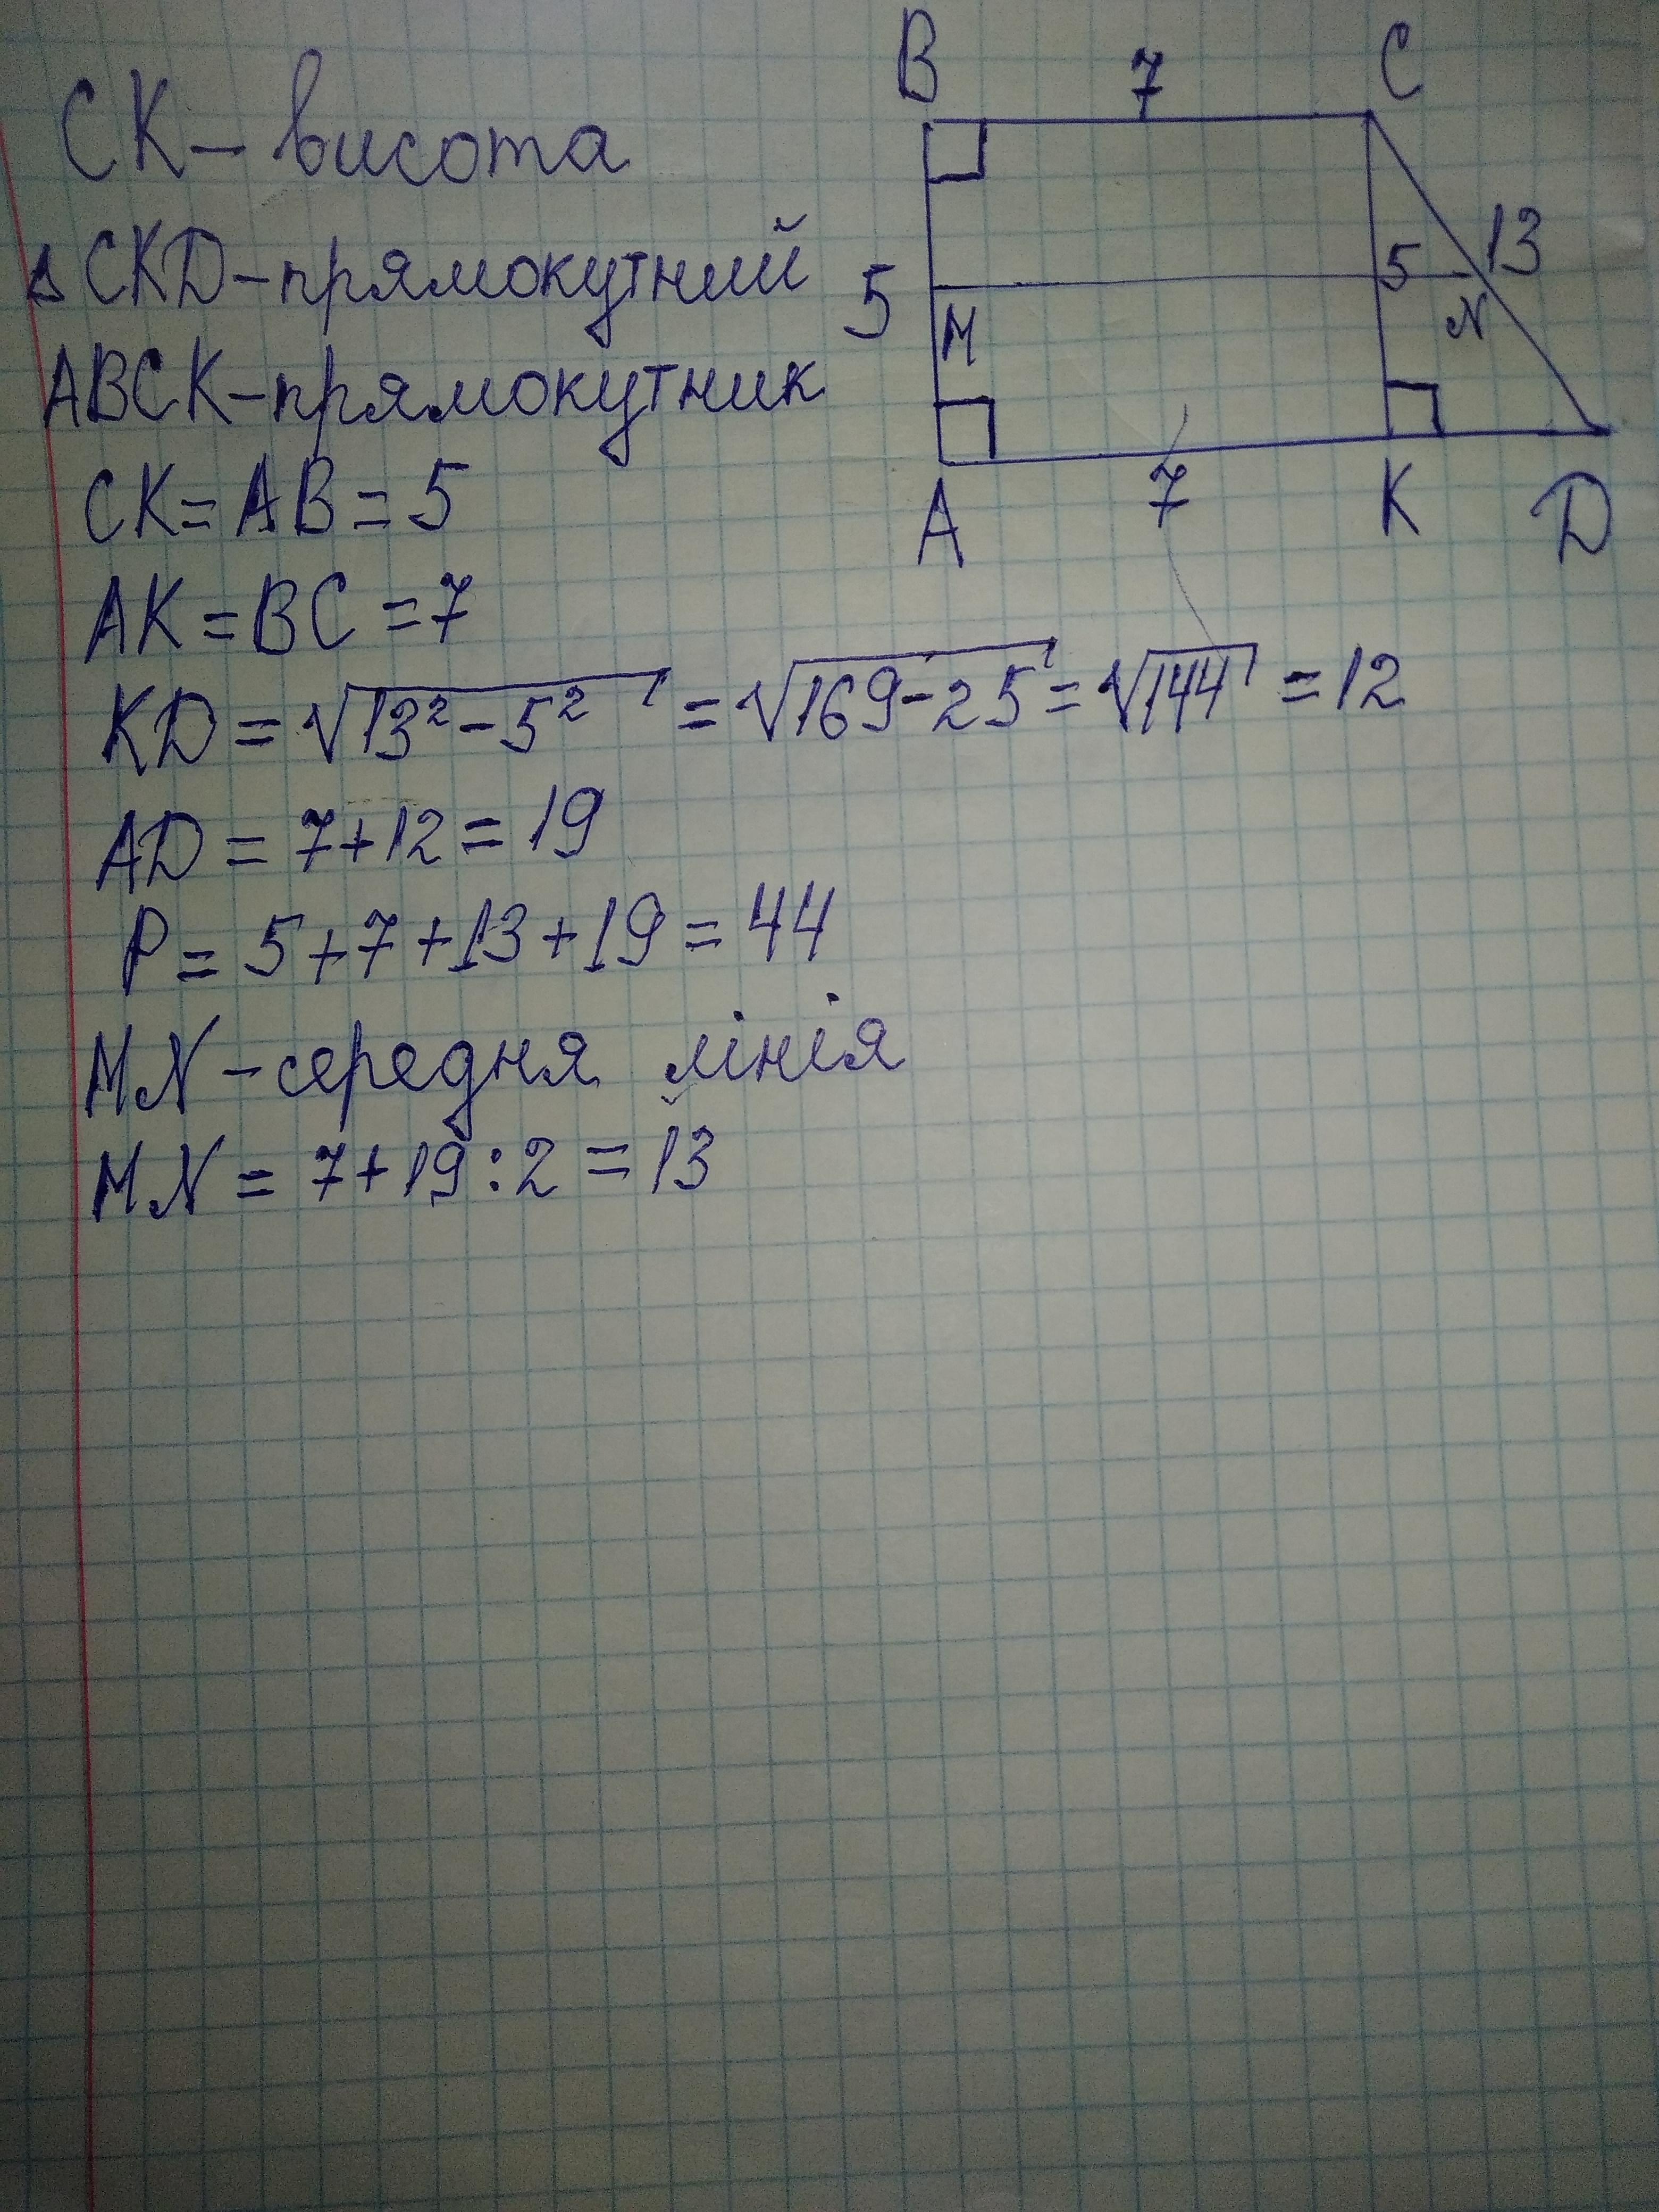 СК – висота
Δ CKD – прямокутний
ABCK – прямокутник
CK = AB = 5
AK = BC = 7
KD = √13² – 5² = √169 – 25 = √144 = 12
AD = 7 + 12 = 19
P = 5 + 7 + 13 + 19 = 44
MN – середня лінія
MN = 7 + 19 : 2 = 13
B 7 C
5 5 13
M N
A 7 K D